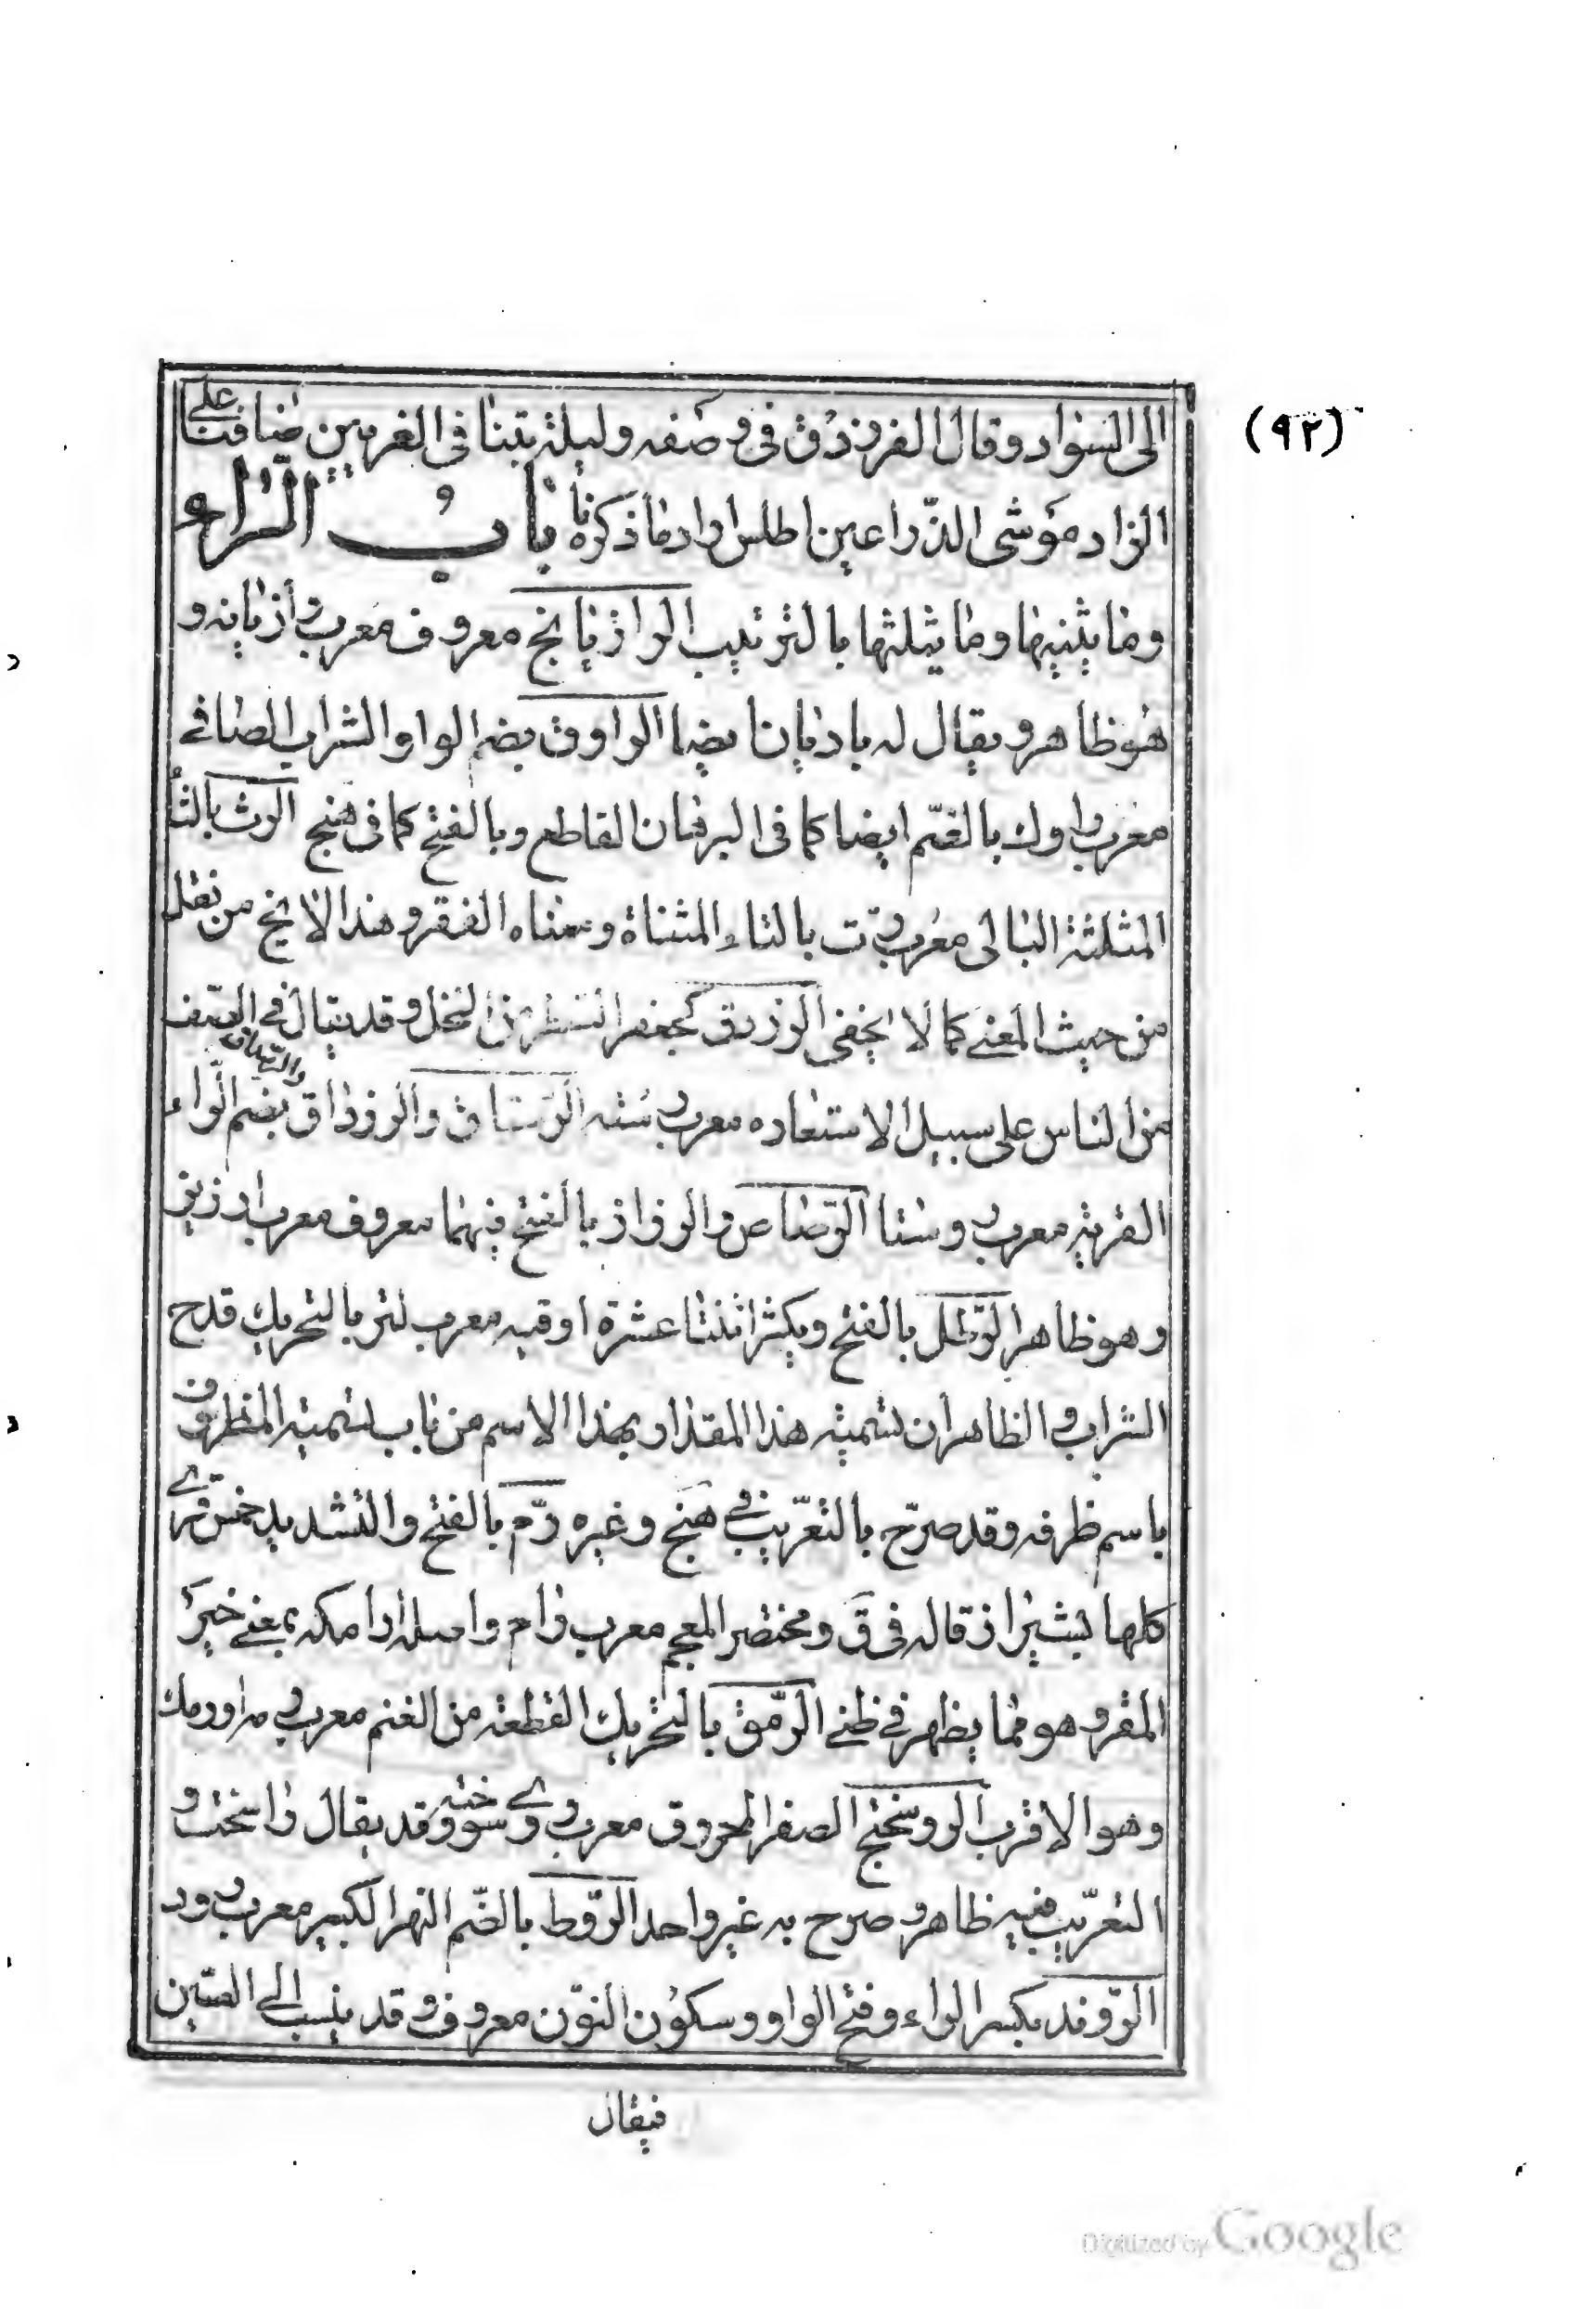 (٩٢)
الى السواد وقال الفرزدق فى وصفه وليلة بتنا فى الغريين ضافنا على
الزاد موشى الذراعين اطلس اراد ما ذكرنا باب الراء
وما يثنيها وما يثلثها بالترتيب الرازيانج معروف معرب رازيانه و
هو ظاهر ويقال له باديان ايضا الراوق بضم الواو الشراب الصافے
معرب راوك بالضم ايضا كما فى البرهان القاطع وبالفتح كما فى هنج الرث بالثاء
المثلثة البالى معرب رت بالتاء المثناة ومعناه الفقر وهذا لا يخ من نقل
من حيث المعنے كما لا يخفى الرزدق كجعفر السطر من النخل وقد يقال فے الصف
من الناس على سبيل الاستعاره معرب رسته الرستاق والرزداق بضم الراء
القرية معرب روستا الرصاص والرزاز بالفتح فيهما معروف معرب ارزيز
وهو ظاهر الرطل بالفتح ويكسر اثنتا عشرة اوقيه معرب لتر بالتحريك قدح
الشراب والظاهر ان تسميته هذا المقدار بهذا الاسم من باب تسمية المظروف
باسم ظرفه وقد صرح بالتعريب فے هنج وغيره رم بالفتح والتشديد خمس قرے
كلها بشيراز قاله فى ق ومختصر المعجم معرب رام واصله ارامكه بمعنے خير
المقر وهو مما يظهر فے ظنے الرمق بالتحريك القطعة من الغنم معرب رمه او رمك
وهو الاقرب الروسختج الصفر المحروق معرب روے سوخته وقد يقال راسخت و
التعريب فيه ظاهر وصرح به غير واحد الروط بالضم النهر الكبير معرب رود
الروند بكسر الراء وفتح الواو وسكون النون معروف وقد ينسب الے الصين
فيقال
Digitized by Google